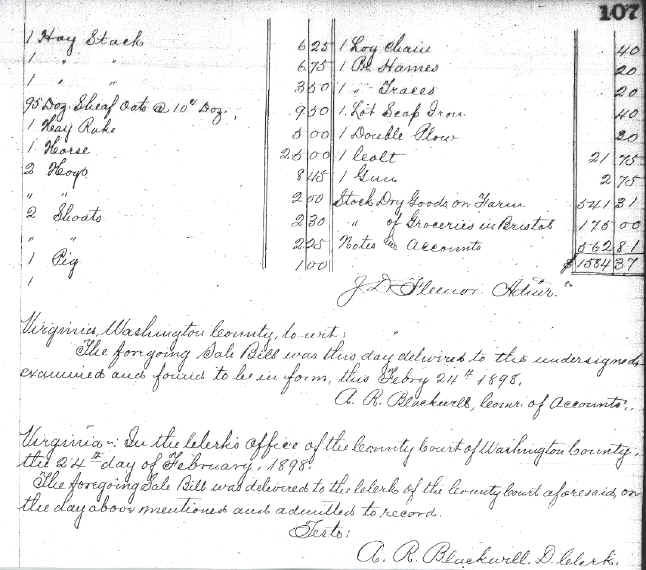 107
1 Hay Stack 6 25 1 Log Chain 40
1 " " 6 75 1 Pr Hames 20
1 " " 3 50 1 " Traces 20
95 Doz. Sheaf Oats @ 10¢ Doz. 9 50 1 Lot Scap Iron 40
1 Hay Rake 5 00 1 Double Plow 20
1 Horse 25 00 1 Colt 21 75
2 Hogs 8 45 1 Gun 2 75
" " 2 00 Stock Dry Goods on Farm 541 31
2 Shoats 2 30 " of Groceries in Bristol 175 00
" " 2 25 Notes Accounts 562 81
1 Pig 1 00 $1584 37
1
J. D. Fleenor Admr.
Virginia, Washington County, to wit:
The foregoing Sale Bill was this day delivered to the undersigned,
examined and found to be in form, this Febry 24th 1898.
A. R. Blackwell, Comr. of Accounts.
Virginia: In the Clerk's Office of the County Court of Washington County,
the 24th day of February, 1898.
The foregoing Sale Bill was delivered to the Clerk of the County Court aforesaid, on
the day above mentioned and admitted to record.
Teste:
A. R. Blackwell. D. Clerk.